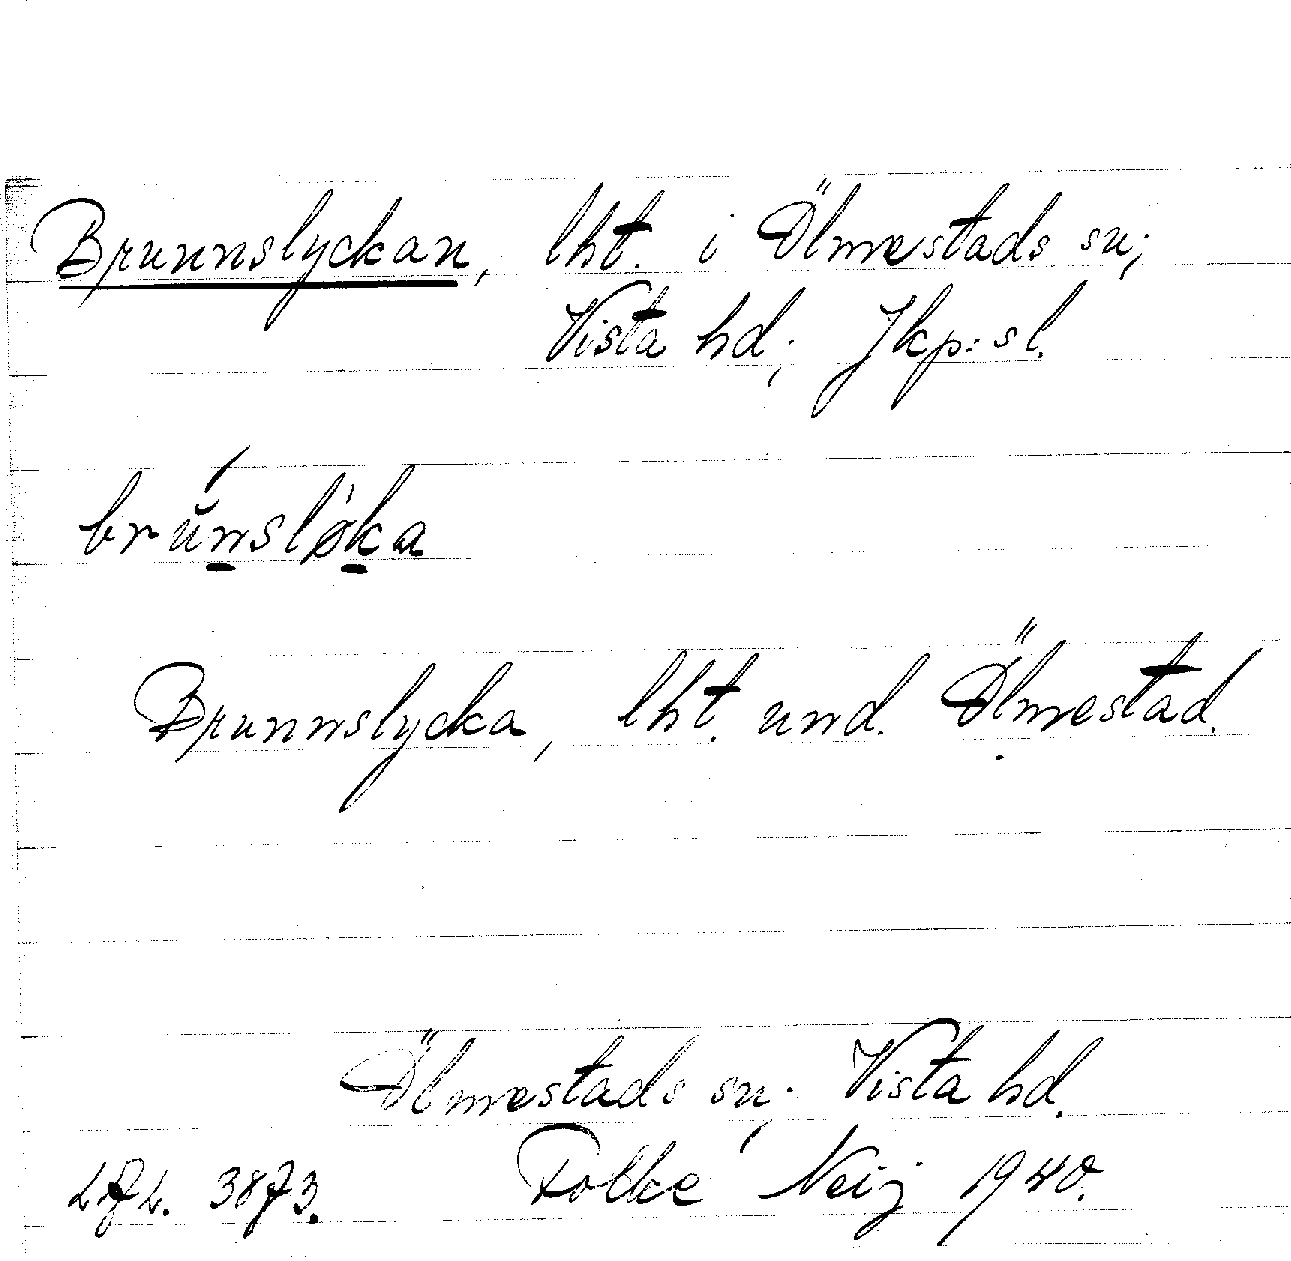 Brunnslyckan, lht. i Ölmestads sn;
Vista hd; Jkp:sl.
brŭ́nsløka
Brunnslycka, lht. und. Ölmestad.
Ölmestads sn; Vista hd.
3873. Folke Neij 1940.